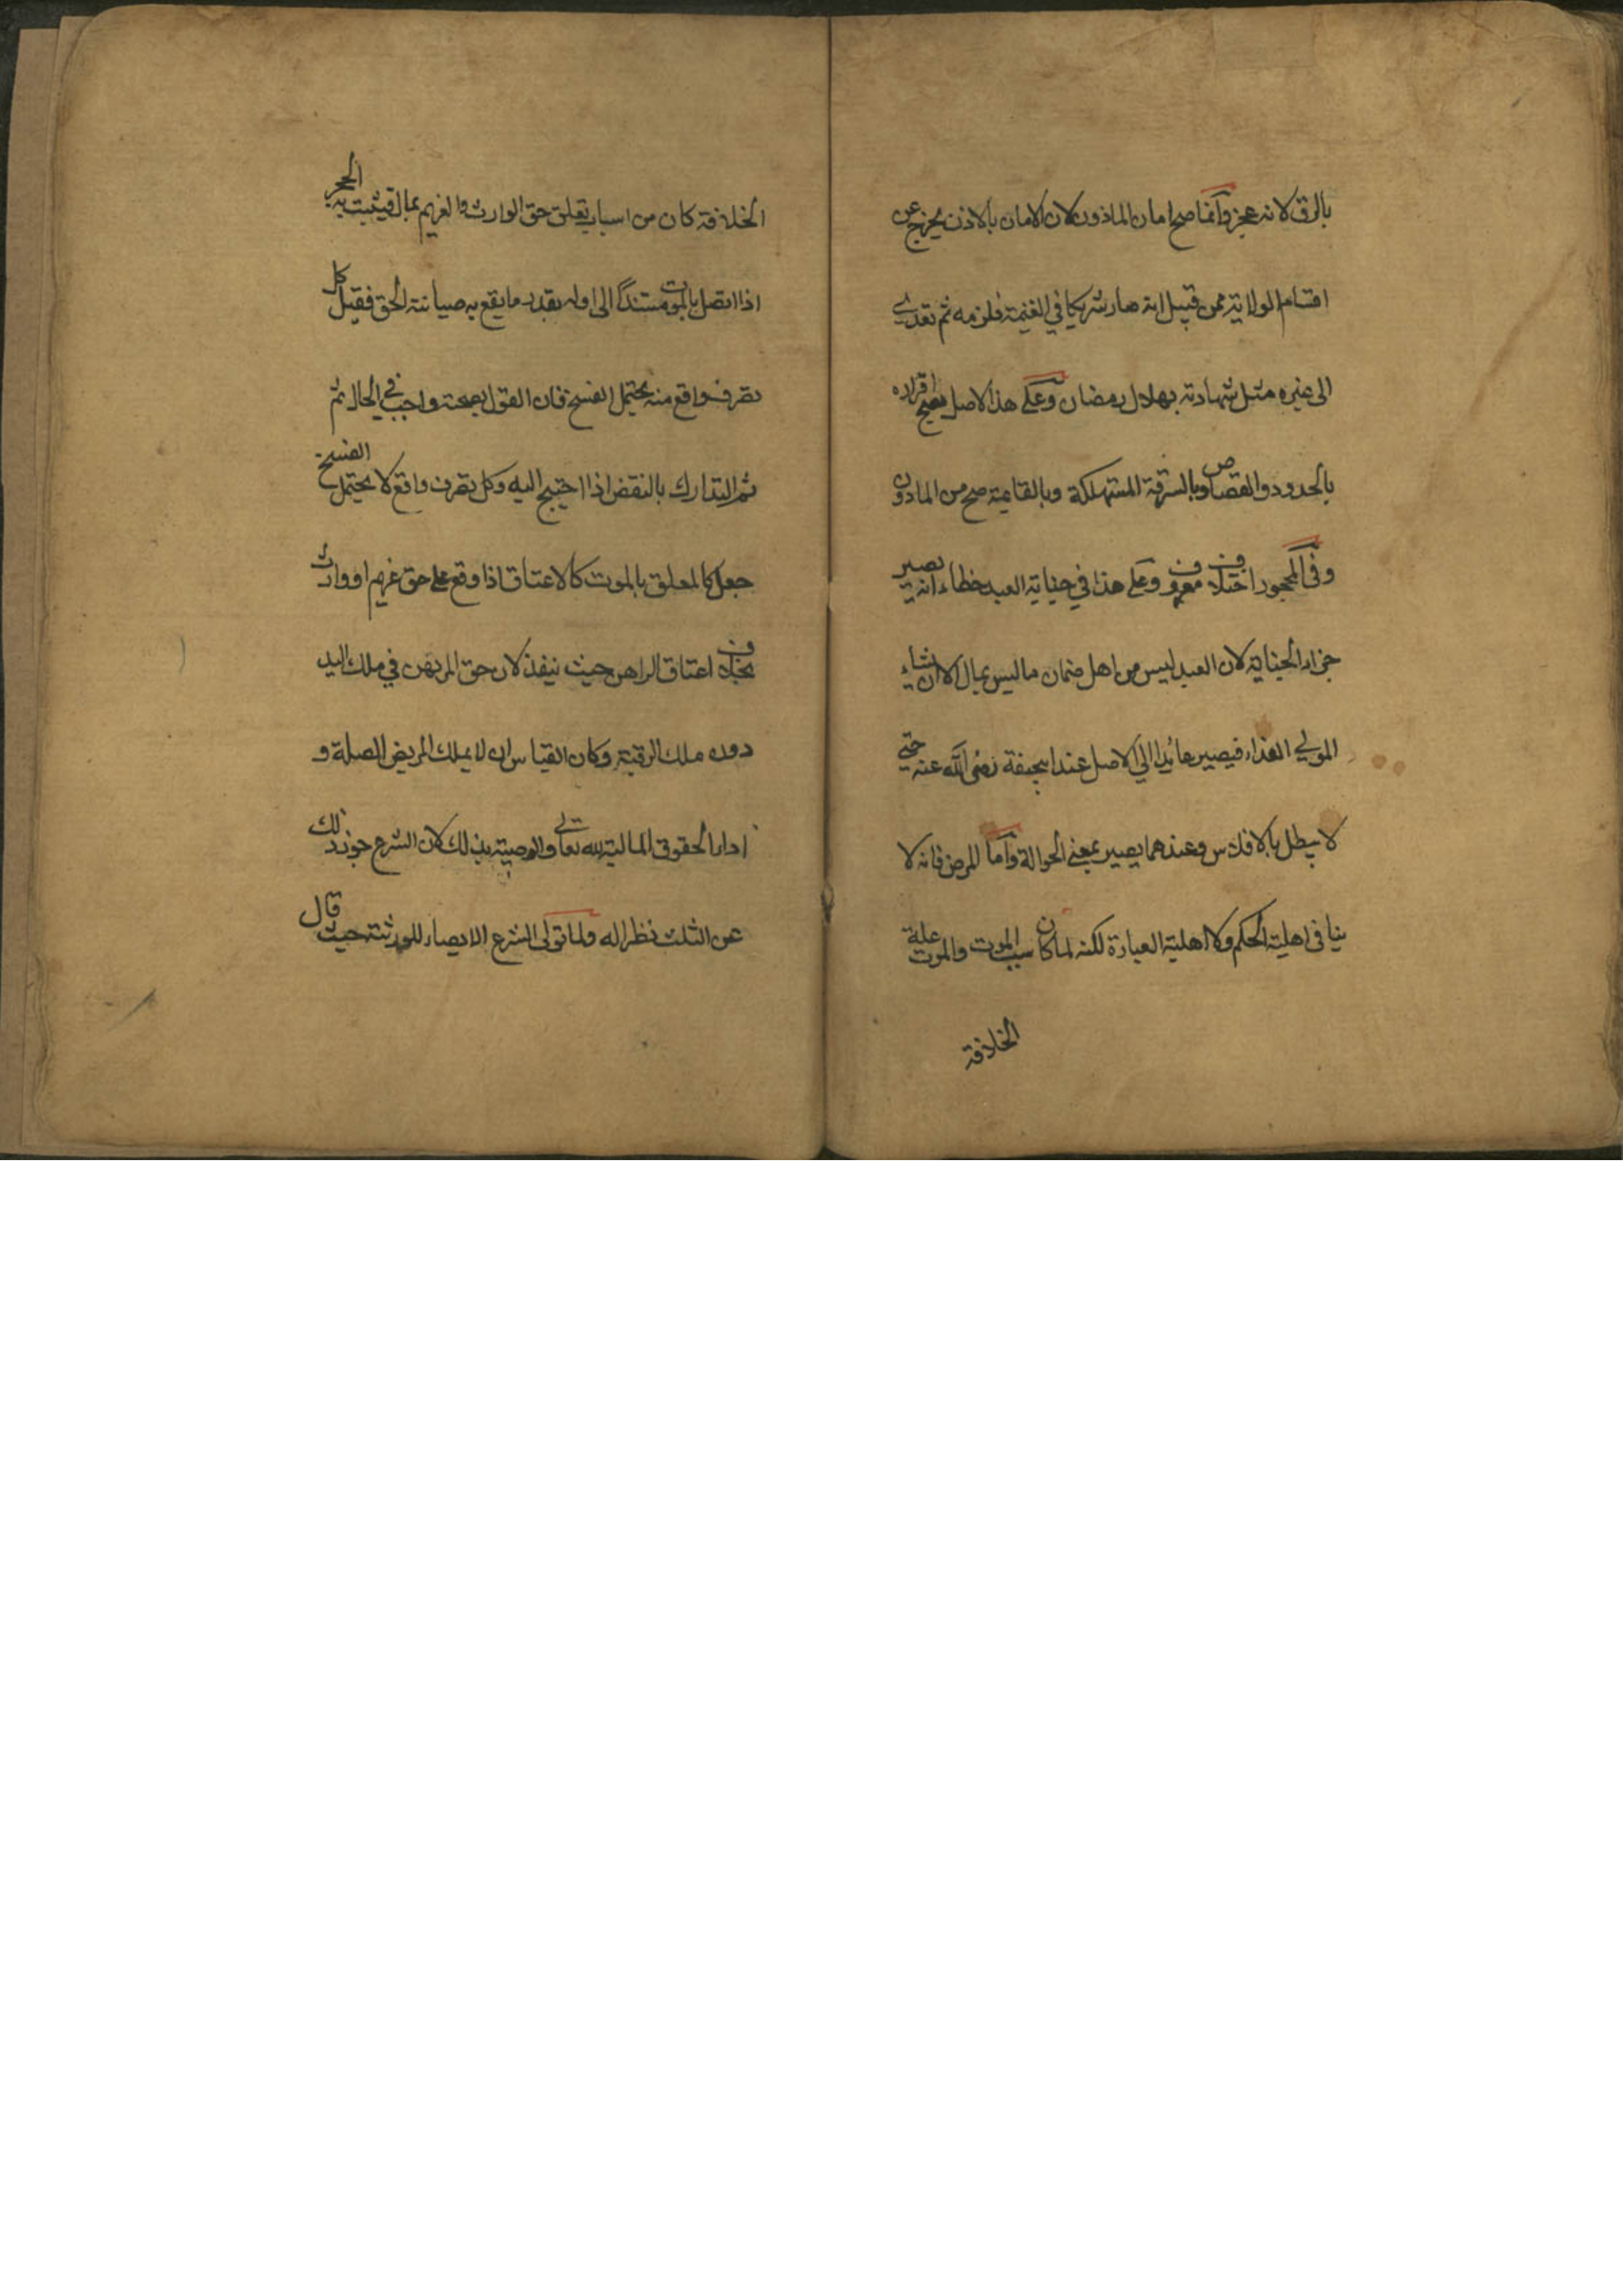 بالرق لانه عجز وانما صح امان الماذون لان الامان بالاذن يخرج عن
اقسام الولاية من قبيل انه صار شريكا في الغنيمة فلزمه ثم تعدى
الى غيره مثل شهادته بهلال رمضان وعلى هذا الاصل يصح اقراره
بالحدود والقصاص وبالسرقة المستهلكة وبالقايمة صح من الماذون
وفي المحجور اختلاف معروف وعلى هذا في جناية العبد خطاء انه يصير
جزاء الجناية لان العبد ليس من اهل ضمان ما ليس بمال الا ان شاء
المولى الفداء فيصير عائدا الى الاصل عند ابيحنيفة رضى الله عنه حتى
لا يبطل بالافلاس وعندهما يصير بمعنى الحوالة واما المرض فانه لا
ينافى اهلية الحكم ولا اهلية العبارة لكنه لما كان سبب الموت والموت علة
الخلافة
الخلافة كان من اسباب تعلق حق الوارث والغريم بماله فيثبت به الحجر
اذا اتصل بالموت مستندا الى اوله بقدر ما يقع به صيانة الحق فقيل كل
تصرف واقع منه يحتمل الفسخ فان القول بصحته واجب في الحال ثم
ثم التدارك بالنقض اذا احتيج اليه وكل تصرف واقع لا يحتمل الفسخ
جعل كالمعلق بالموت كالاعتاق اذا وقع على حق غريم او وارث
بخلاف اعتاق الراهن حيث ينفذ لان حق المرتهن في ملك اليد
دون ملك الرقبة وكان القياس ان لا يملك المريض الصلة و
اداء الحقوق المالية لله تعالى والوصية بذلك لان الشرع جوز ذلك
عن الثلث نظرا له ولما تولى الشرع الايصاء للورثة حيث قال